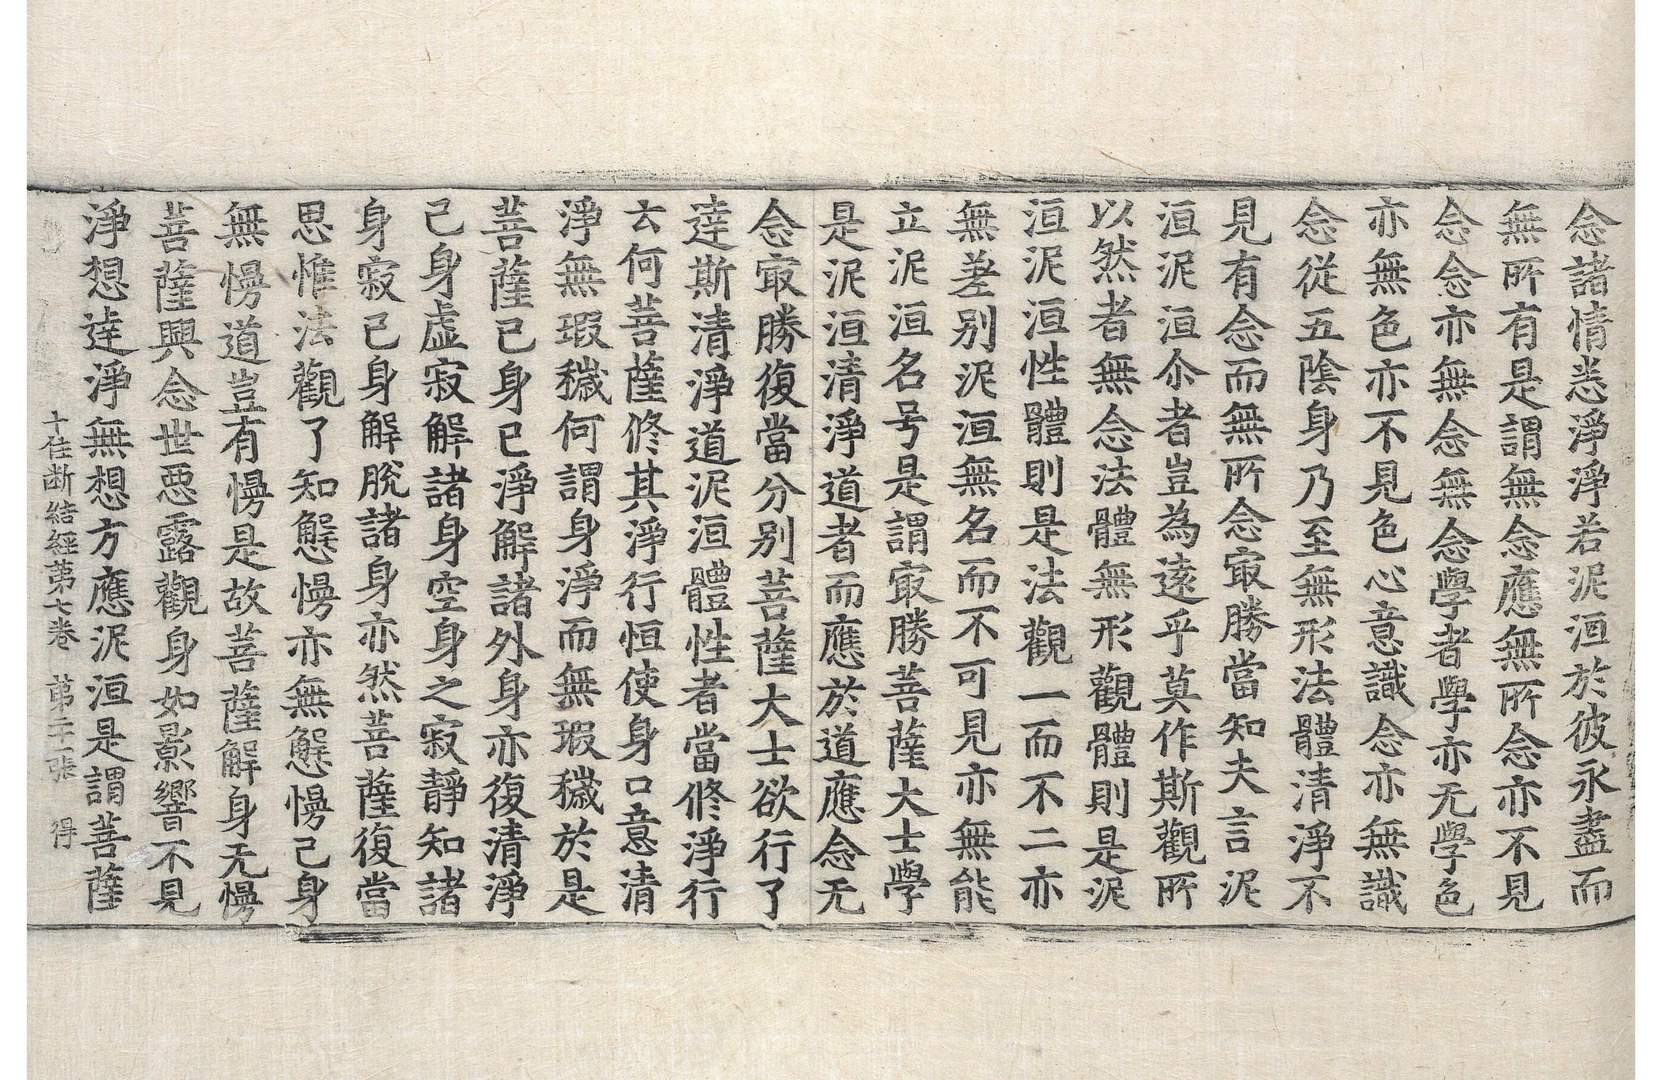 念諸情悉淨淨若泥洹於彼永盡而
無所有是謂無念應無所念亦不見
念念亦無念無念學者學亦无學色
亦無色亦不見色心意識念亦無識
念從五陰身乃至無形法體清淨不
見有念而無所念㝡勝當知夫言泥
洹泥洹尒者豈為遠乎莫作斯觀所
以然者無念法體無形觀體則是泥
洹泥洹性體則是法觀一而不二亦
無差别泥洹無名而不可見亦無能
立泥洹名号是謂㝡勝菩薩大士學
是泥洹清淨道者而應於道應念无
念㝡勝復當分别菩薩大士欲行了
達斯清淨道泥洹體性者當修淨行
云何菩薩修其淨行恒使身口意清
淨無瑕穢何謂身淨而無瑕穢於是
菩薩己身已淨解諸外身亦復清淨
己身虛寂解諸身空身之寂靜知諸
身寂己身解脫諸身亦然菩薩復當
思惟法觀了知懈慢亦無懈慢己身
無慢道豈有慢是故菩薩解身无慢
菩薩興念世惡露觀身如影響不見
淨想達淨無想方應泥洹是謂菩薩
十住断結經苐七卷 苐二十一張 得